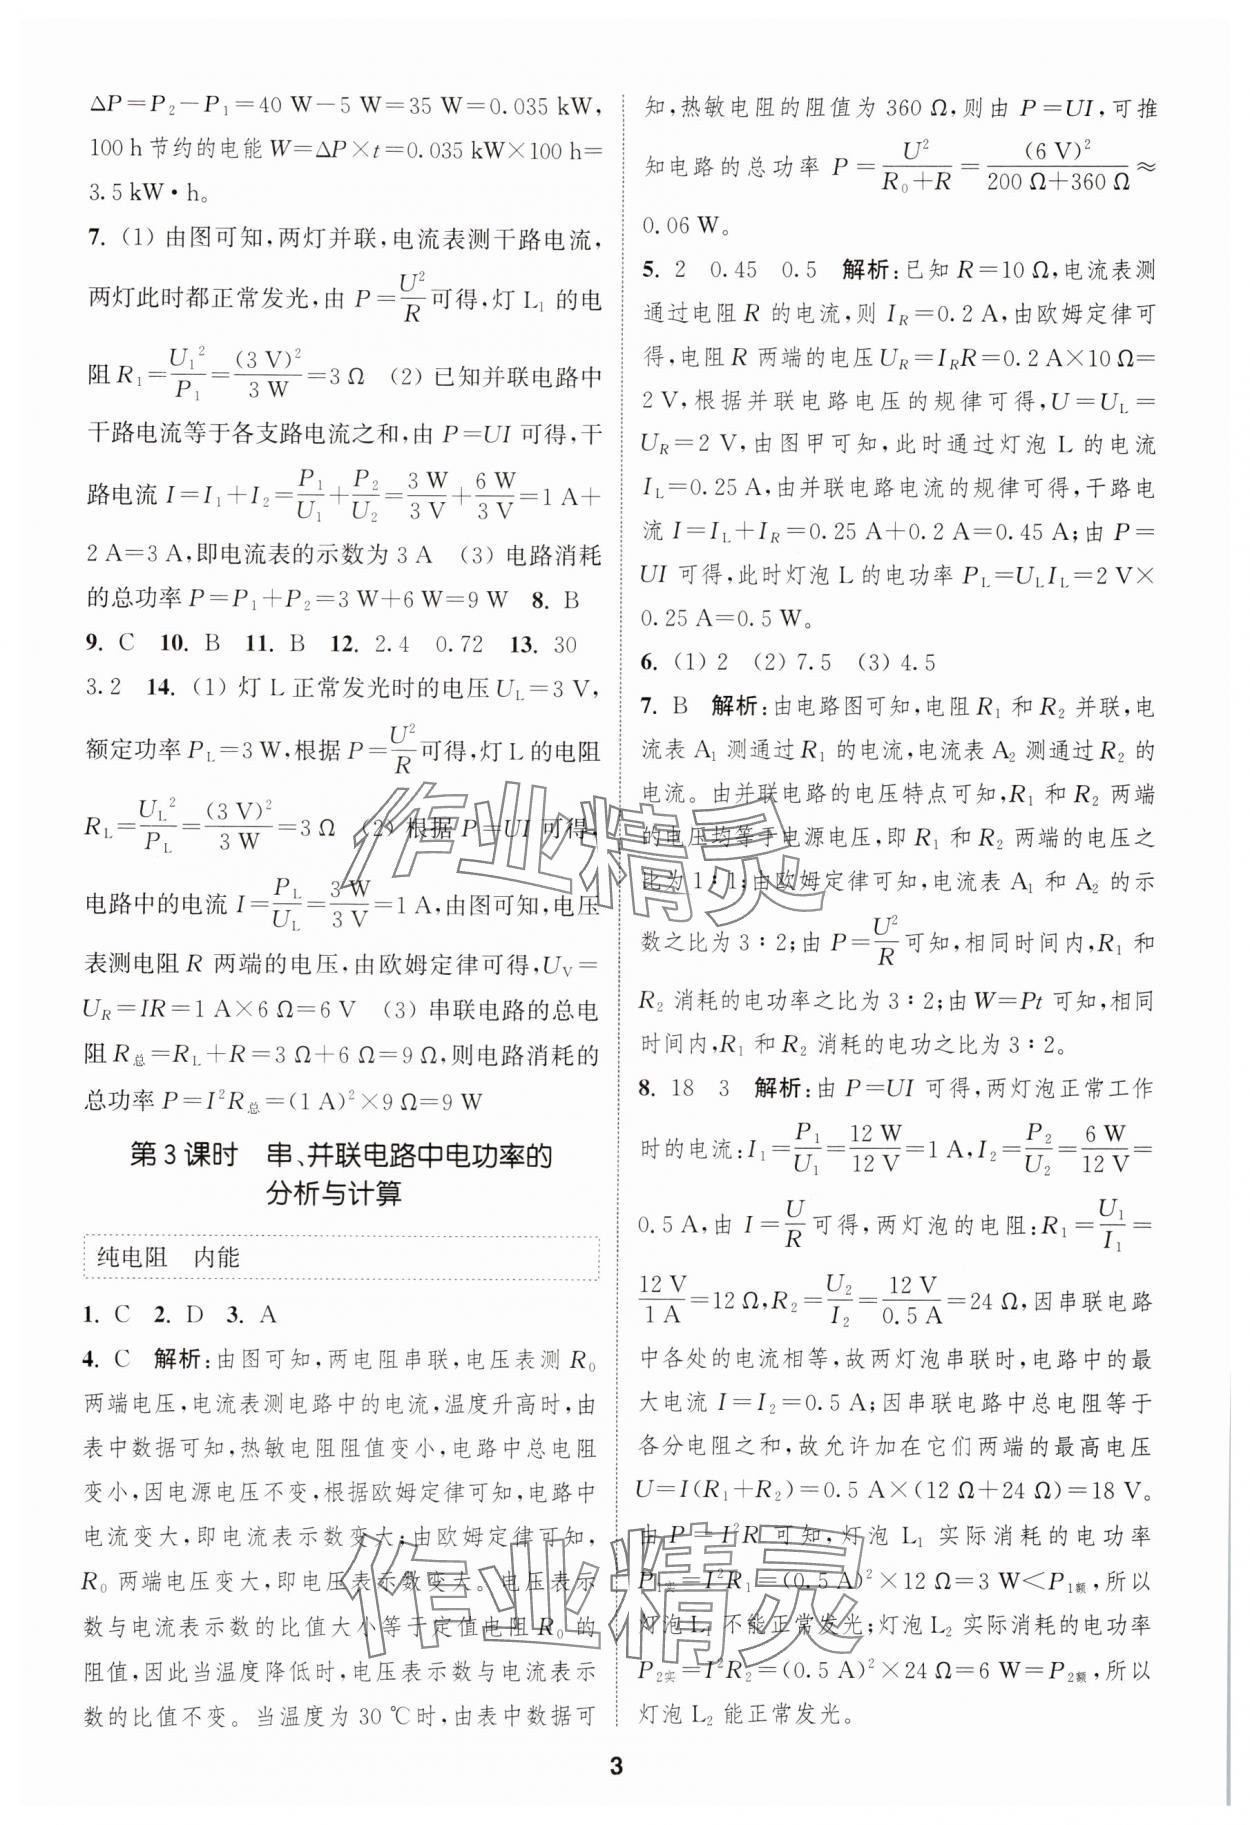 ΔP=P₂-P₁=40 W-5 W=35 W=0.035 kW,
100 h节约的电能W=ΔP×t=0.035 kW×100 h=
3.5 kW·h。
7. (1) 由图可知,两灯并联,电流表测干路电流,
两灯此时都正常发光,由 P=U²/R可得,灯 L₁ 的电
阻R₁=U₁²/P₁=(3 V)²/3 W=3 Ω (2) 已知并联电路中
干路电流等于各支路电流之和,由 P=UI 可得,干
路电流 I=I₁+I₂=P₁/U₁+P₂/U₂=3 W/3 V+6 W/3 V=1 A+
2 A=3 A,即电流表的示数为 3 A (3) 电路消耗
的总功率 P=P₁+P₂=3 W+6 W=9 W 8. B
9. C 10. B 11. B 12. 2.4 0.72 13. 30
3.2 14. (1) 灯 L 正常发光时的电压 U_L=3 V,
额定功率 P_L=3 W,根据 P=U²/R可得,灯 L 的电阻
R_L=U_L²/P_L=(3 V)²/3 W=3 Ω (2) 根据 P=UI 可得,
电路中的电流 I=P_L/U_L=3 W/3 V=1 A,由图可知,电压
表测电阻 R 两端的电压,由欧姆定律可得,U_V=
U_R=IR=1 A×6 Ω=6 V (3) 串联电路的总电
阻 R总=R_L+R=3 Ω+6 Ω=9 Ω,则电路消耗的
总功率 P=I²R总=(1 A)²×9 Ω=9 W
第 3 课时 串、并联电路中电功率的
分析与计算
纯电阻 内能
1. C 2. D 3. A
4. C 解析:由图可知,两电阻串联,电压表测 R₀
两端电压,电流表测电路中的电流,温度升高时,由
表中数据可知,热敏电阻阻值变小,电路中总电阻
变小,因电源电压不变,根据欧姆定律可知,电路中
电流变大,即电流表示数变大;由欧姆定律可知,
R₀ 两端电压变大,即电压表示数变大。电压表示
数与电流表示数的比值大小等于定值电阻 R₀ 的
阻值,因此当温度降低时,电压表示数与电流表示
数的比值不变。当温度为 30 ℃时,由表中数据可
知,热敏电阻的阻值为 360 Ω,则由 P=UI,可推
知电路的总功率 P=U²/(R₀+R)=(6 V)²/(200 Ω+360 Ω)≈
0.06 W。
5. 2 0.45 0.5 解析:已知 R=10 Ω,电流表测
通过电阻 R 的电流,则 I_R=0.2 A,由欧姆定律可
得,电阻 R 两端的电压 U_R=I_RR=0.2 A×10 Ω=
2 V,根据并联电路电压的规律可得,U=U_L=
U_R=2 V,由图甲可知,此时通过灯泡 L 的电流
I_L=0.25 A,由并联电路电流的规律可得,干路电
流 I=I_L+I_R=0.25 A+0.2 A=0.45 A;由 P=
UI 可得,此时灯泡 L 的电功率 P_L=U_LI_L=2 V×
0.25 A=0.5 W。
6. (1) 2 (2) 7.5 (3) 4.5
7. B 解析:由电路图可知,电阻 R₁ 和 R₂ 并联,电
流表 A₁ 测通过 R₁ 的电流,电流表 A₂ 测通过 R₂ 的
电流。由并联电路的电压特点可知,R₁ 和 R₂ 两端
的电压均等于电源电压,即 R₁ 和 R₂ 两端的电压之
比为 1∶1;由欧姆定律可知,电流表 A₁ 和 A₂ 的示
数之比为 3∶2;由 P=U²/R可知,相同时间内,R₁ 和
R₂ 消耗的电功率之比为 3∶2;由 W=Pt 可知,相同
时间内,R₁ 和 R₂ 消耗的电功之比为 3∶2。
8. 18 3 解析:由 P=UI 可得,两灯泡正常工作
时的电流:I₁=P₁/U₁=12 W/12 V=1 A,I₂=P₂/U₂=6 W/12 V=
0.5 A,由 I=U/R可得,两灯泡的电阻:R₁=U₁/I₁=
12 V/1 A=12 Ω,R₂=U₂/I₂=12 V/0.5 A=24 Ω,因串联电路
中各处的电流相等,故两灯泡串联时,电路中的最
大电流 I=I₂=0.5 A;因串联电路中总电阻等于
各分电阻之和,故允许加在它们两端的最高电压
U=I(R₁+R₂)=0.5 A×(12 Ω+24 Ω)=18 V。
由 P=I²R 可知,灯泡 L₁ 实际消耗的电功率
P₁实=I²R₁=(0.5 A)²×12 Ω=3 W<P₁额,所以
灯泡 L₁ 不能正常发光;灯泡 L₂ 实际消耗的电功率
P₂实=I²R₂=(0.5 A)²×24 Ω=6 W=P₂额,所以
灯泡 L₂ 能正常发光。
3
作业精灵
作业精灵